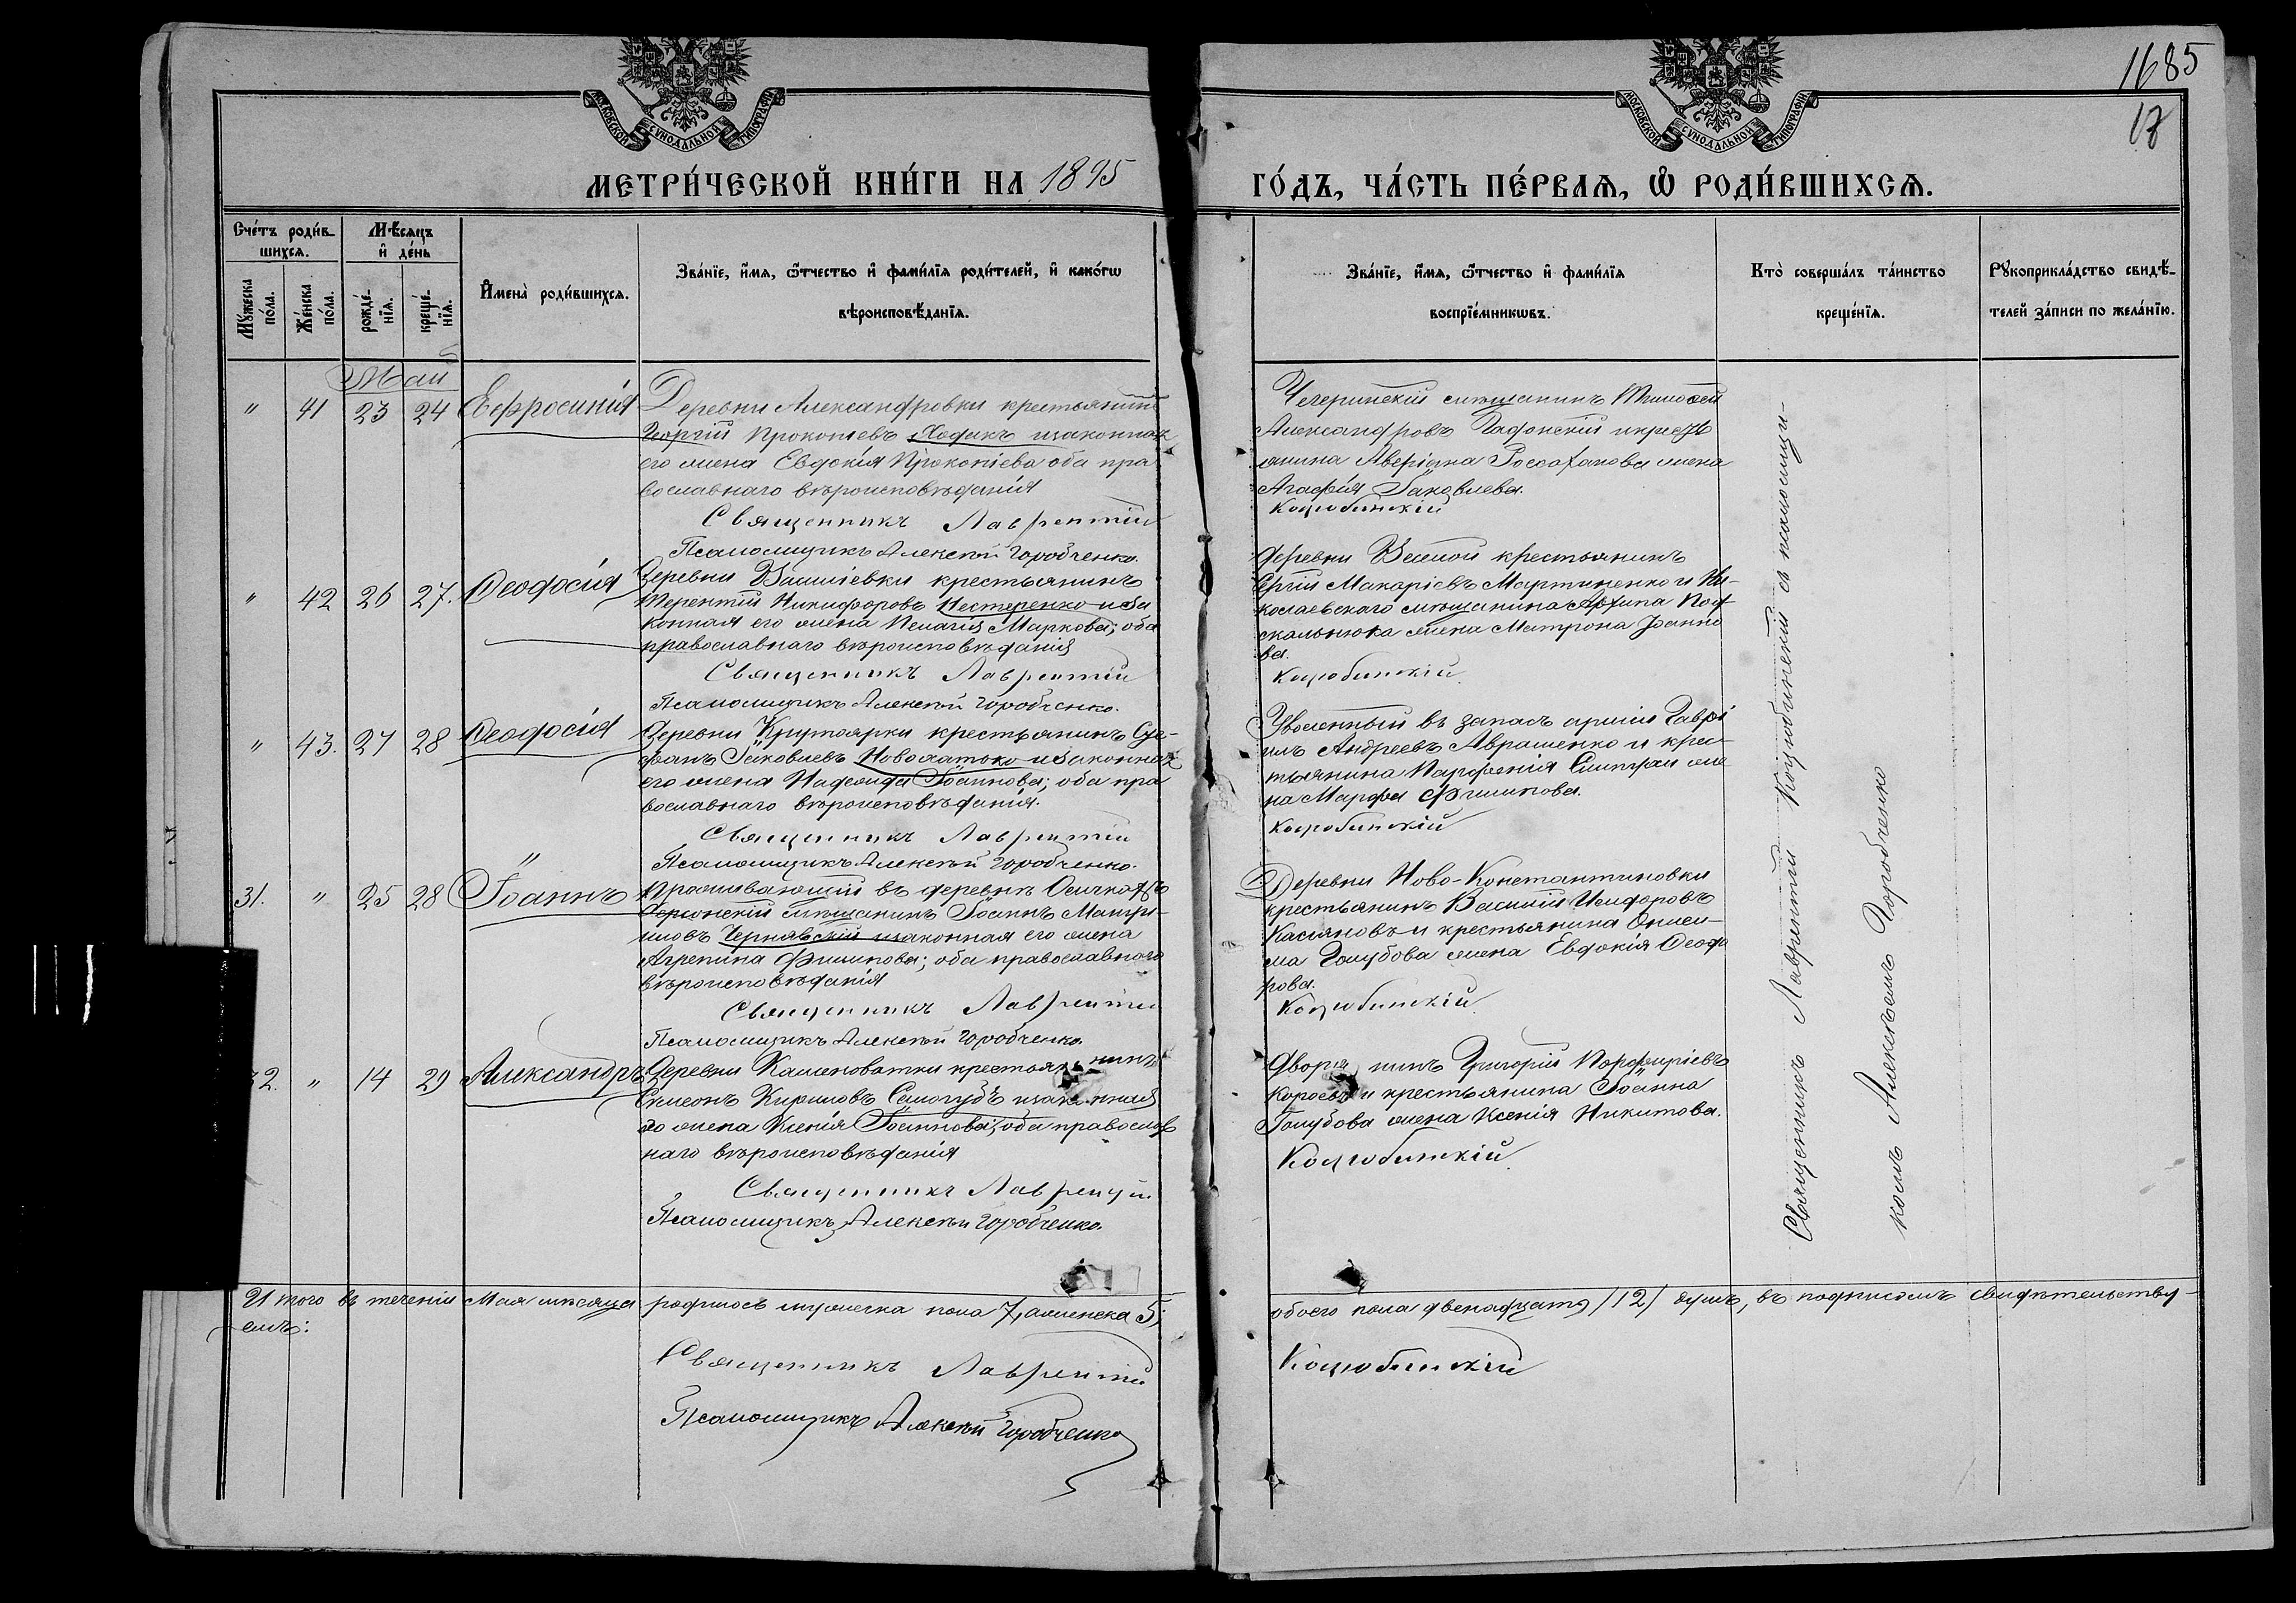 1685
17
МОСКОВСКОЙ СѴНОДАЛЬНОЙ ТИПОГРАФІИ
МОСКОВСКОЙ СѴНОДАЛЬНОЙ ТИПОГРАФІИ
МЕТРИ́ЧЕСКОЙ КНИ́ГИ НА 1895
ГО́ДЪ, ЧА́СТЬ ПЕ́РВАѦ, Ѽ РОДИ́ВШИХСѦ.
Сче́тъ роди́в-
шихсѧ.
Мꙋ́жеска по́ла.
Же́нска по́ла.
Мѣ́сѧцъ
и҆ де́нь
рожде́-
нїѧ.
креще́-
нїѧ.
И҆мена̀ роди́вшихсѧ.
Зва́нїе, и҆́мѧ, ѻ҆́тчество и҆ фами́лїѧ роди́телей, и҆ како́гѡ
вѣроисповѣ́данїѧ.
Зва́нїе, и҆́мѧ, ѻ҆́тчество и҆ фами́лїѧ
воспрїе́мникѡвъ.
Кто̀ соверша́лъ та́инство
креще́нїѧ.
Рꙋкоприкла́дство свидѣ́-
телей за́писи по жела́нїю.
Май
" 41 23 24 Евфросинія
Деревни Александровки крестьянинъ
Георгій Прокопіевъ Ходикъ и законная
его жена Евдокія Прокопіева оба пра
вославнаго вѣроисповѣданія
Священникъ Лаврентій
Псаломщикъ Алексѣй Городченко.
Чегеринскій мѣщанинъ Тимоѳей
Александровъ и кресть
янина Аверіана жена
Агафія Іаковлева.
Коцюбинскій
" 42 26 27. Ѳеодосія
Деревни Василіевки крестьянинъ
Терентій Никифоровъ Нестеренко и за
конная его жена Пелагія Маркова; оба
православнаго вѣроисповѣданія
Священникъ Лаврентій
Псаломщикъ Алексѣй Городченко.
Деревни Веселой крестьянинъ
Сергій Макаріевъ Мартиненко и Ни-
колаевскаго мѣщанина Архипа Под
скальнюка жена Матрона Іоанно
ва.
Коцюбинскій
" 43. 27 28 Ѳеодосія
Деревни Крутоярки крестьянинъ Сте-
фанъ Іаковлевъ Новохатько и законная
его жена Надежда Іоаннова; оба пра
вославнаго вѣроисповѣданія.
Священникъ Лаврентій
Псаломщикъ Алексѣй Городченко.
Уволенный въ запасъ арміи Гаврі
илъ Андреевъ Аврашенко и крес-
тьянина Парфенія же
на Марфа Филиппова.
Коцюбинскій
31. " 25 28 Іоаннъ
Проживающій въ деревнѣ
Херсонскій мѣщанинъ Іоаннъ
Чернявскій и законная его жена
Агрепина Филиппова; оба православнаго
вѣроисповѣданія
Священникъ Лаврентій
Псаломщикъ Алексѣй Городченко
Деревни Ново-Константиновки
крестьянинъ Василій Исидоровъ
Касіановъ и крестьянина Ониси-
ма Голубова жена Евдокія Ѳеодо
рова.
Коцюбинскій
32. " 14 29 Александръ
Деревни Камяноватки крестьянинъ
Симеонъ Кириловъ Самогудъ и законная
его жена Ксенія Іоаннова; оба православ
наго вѣроисповѣданія
Священникъ Лаврентій
Псаломщикъ Алексѣй Городченко.
Дворянинъ Григорій Порфиріевъ
и крестьянина Іоанна
Голубова жена Ксенія Никитова.
Коцюбинскій
Священникъ Лаврентій Коцюбинскій съ псаломщи-
комъ Алексѣемъ Городченко
Итого въ теченіи Мая мѣсяца родилось мужеска пола 7, а женска 5; обоего пола двенадцать /12/ душъ, въ подписомъ свидѣтельству-
емъ:
Священникъ Лаврентій Коцюбинскій
Псаломщикъ Алексѣй Городченко